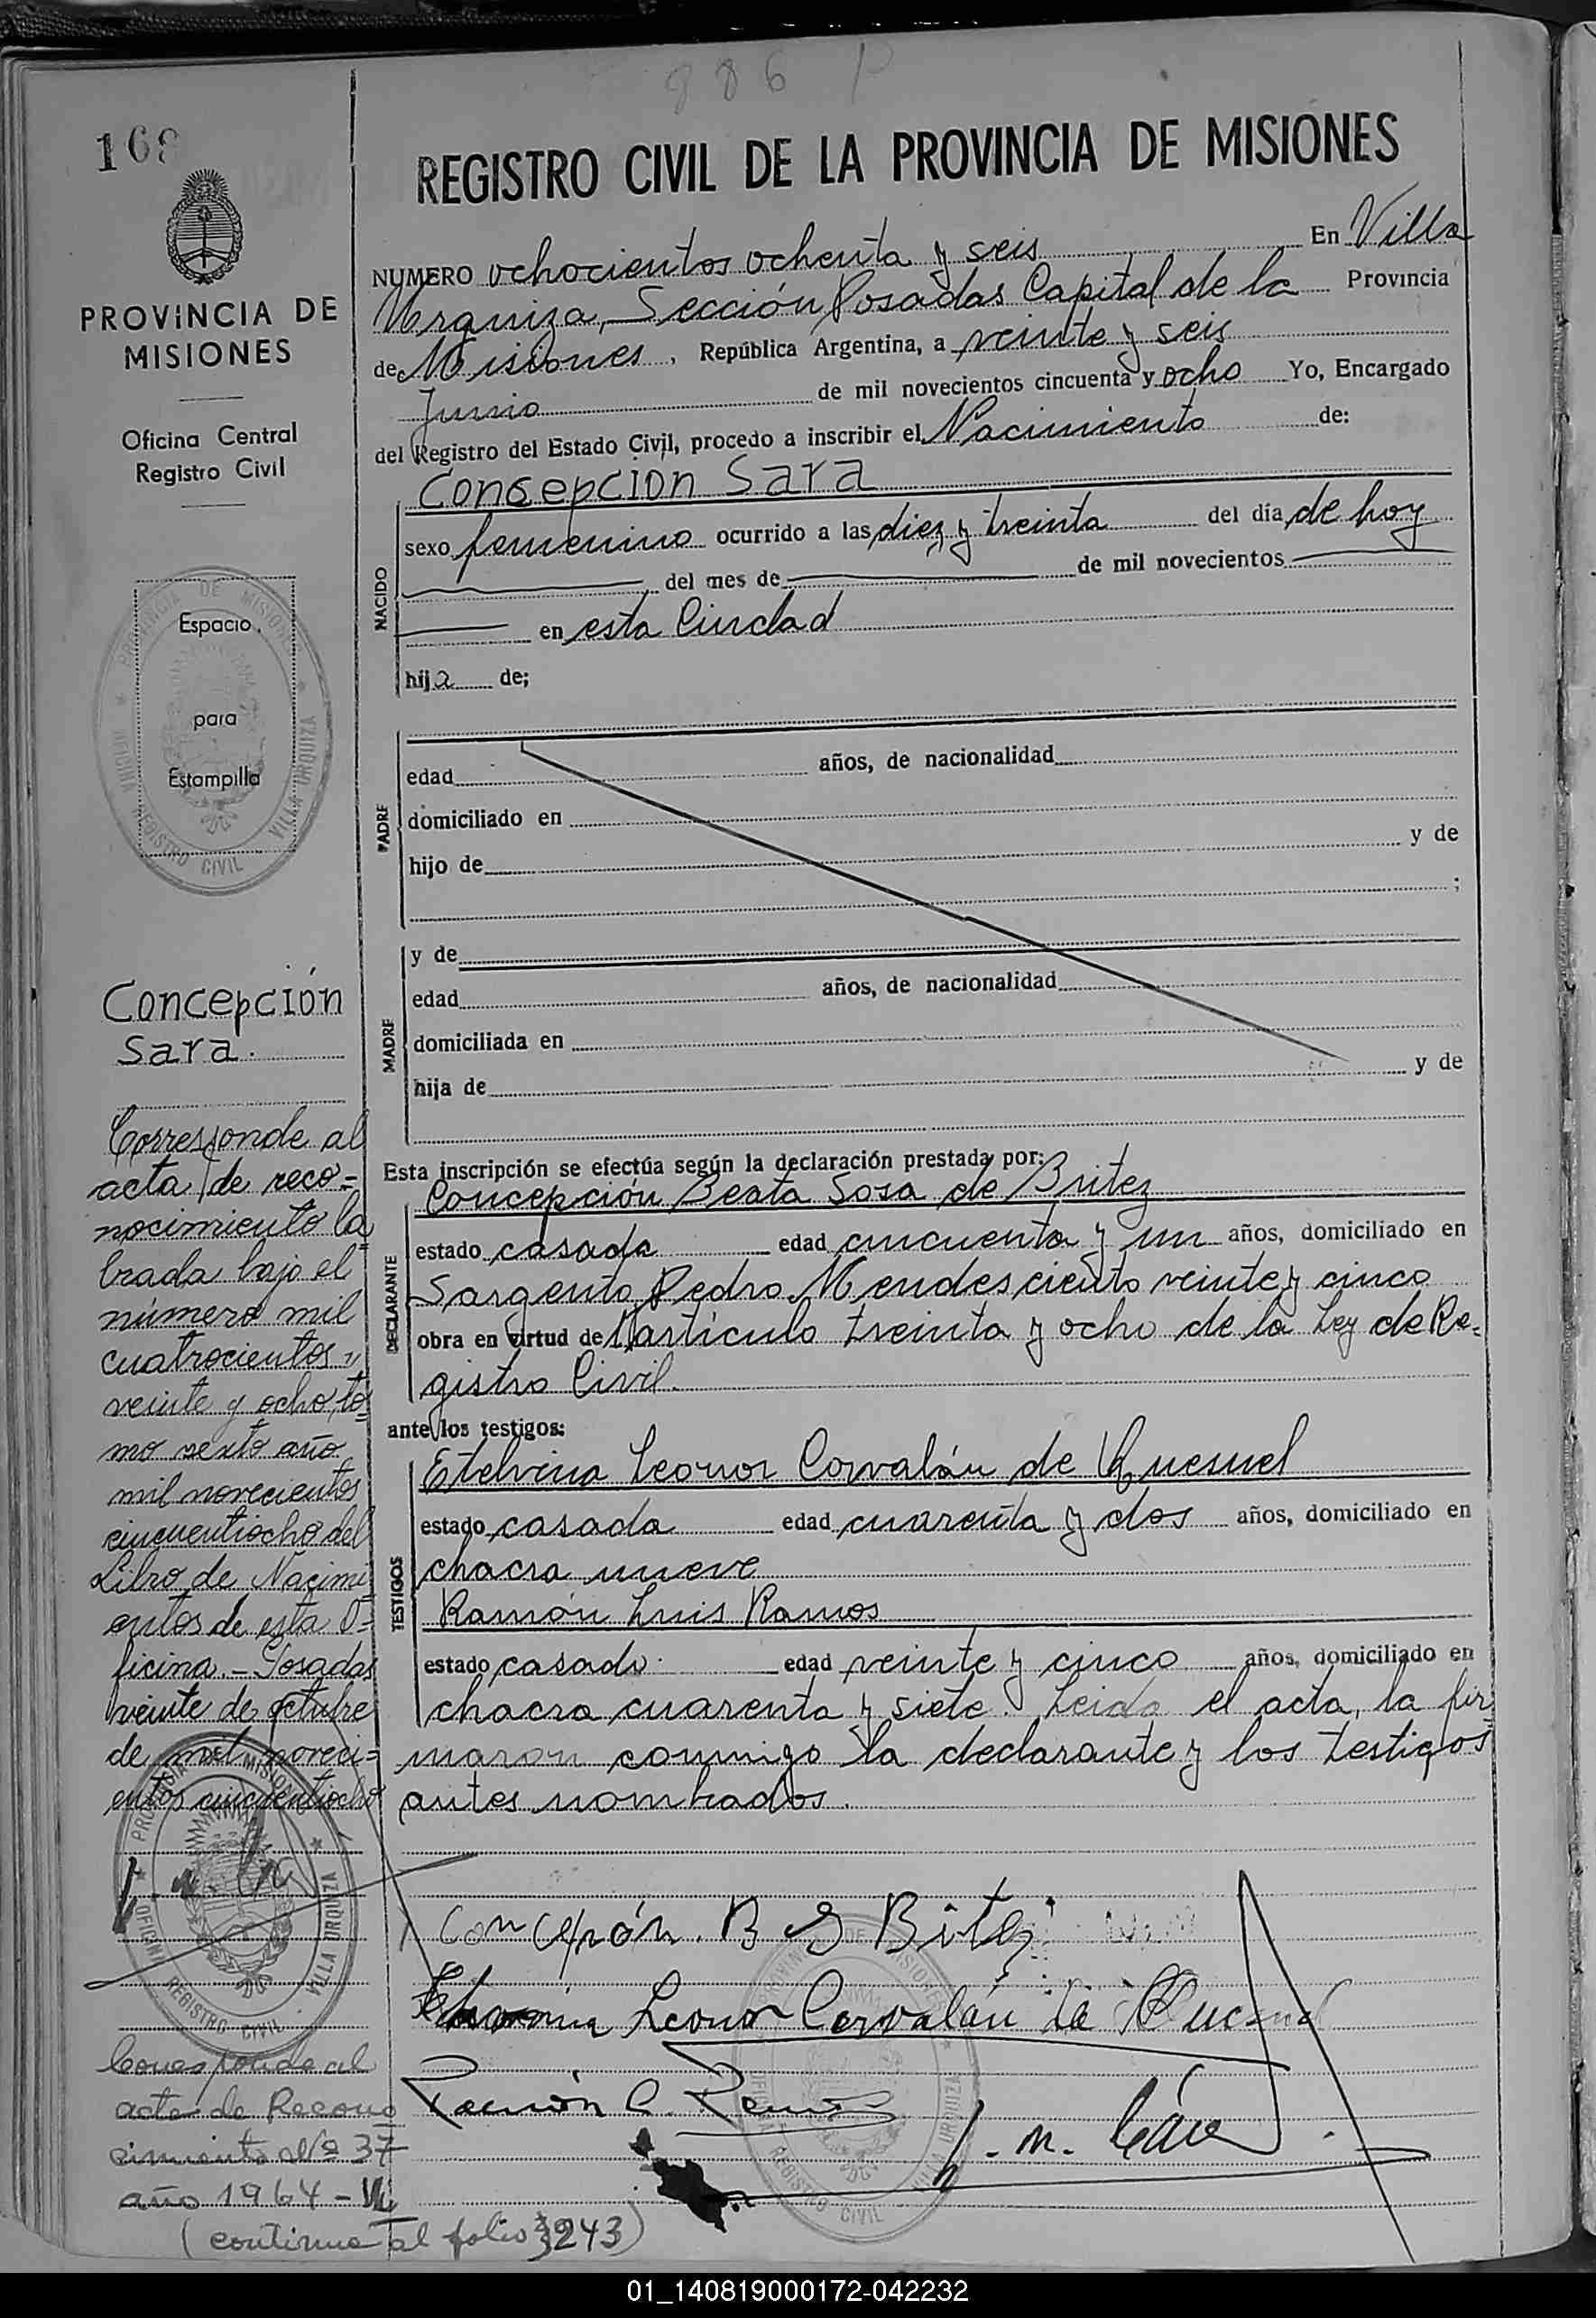 886 P
168
REGISTRO CIVIL DE LA PROVINCIA DE MISIONES
PROVINCIA DE
MISIONES
Oficina Central
Registro Civil
NUMERO ochocientos ochenta y seis En Villa
Urquiza, Sección Posadas Capital de la Provincia
de Misiones, República Argentina, a veinte y seis
Junio de mil novecientos cincuenta y ocho Yo, Encargado
del Registro del Estado Civil, procedo a inscribir el Nacimiento de:
Concepción Sara
NACIDO
sexo femenino ocurrido a las diez y treinta del día de hoy
del mes de de mil novecientos
en esta Ciudad
hija de;
Espacio
para
Estampilla
PROVINCIA DE MISIONES
OFICINA REGISTRO CIVIL VILLA URQUIZA
PADRE
edad años, de nacionalidad
domiciliado en
hijo de y de
;
MADRE
y de
edad años, de nacionalidad
domiciliada en
hija de y de
Esta inscripción se efectúa según la declaración prestada por:
DECLARANTE
Concepción Beata Sosa de Britez
estado casada edad cincuenta y un años, domiciliado en
Sargento Pedro Mendes ciento veinte y cinco
obra en virtud del artículo treinta y ocho de la Ley de Re=
gistro Civil.
ante los testigos:
TESTIGOS
Etelvina Leonor Corvalán de Quesnel
estado casada edad cuarenta y dos años, domiciliado en
chacra nueve
Ramón Luis Ramos
estado casado edad veinte y cinco años, domiciliado en
chacra cuarenta y siete. Leida el acta, la fir
maron conmigo la declarante y los testigos
antes nombrados.
Concepción
Sara.
Corresponde al
acta de reco=
nocimiento la
brada bajo el
número mil
cuatrocientos
veinte y ocho, to=
mo sexto año
mil novecientos
cincuentiocho del
Libro de Nacimi
entos de esta O=
ficina.- Posadas
veinte de octubre
de mil noveci=
entos cincuentiocho
PROVINCIA DE MISIONES
OFICINA REGISTRO CIVIL VILLA URQUIZA
Concepón. B S Bitez
Leonor Corvalán de Quesnel
Ramón L. Ramos
PROVINCIA DE MISIONES
OFICINA REGISTRO CIVIL VILLA URQUIZA
Corresponde al
acta de Recono
cimiento Nº 37
año 1964 -
(continua al folio 243)
01_140819000172-042232